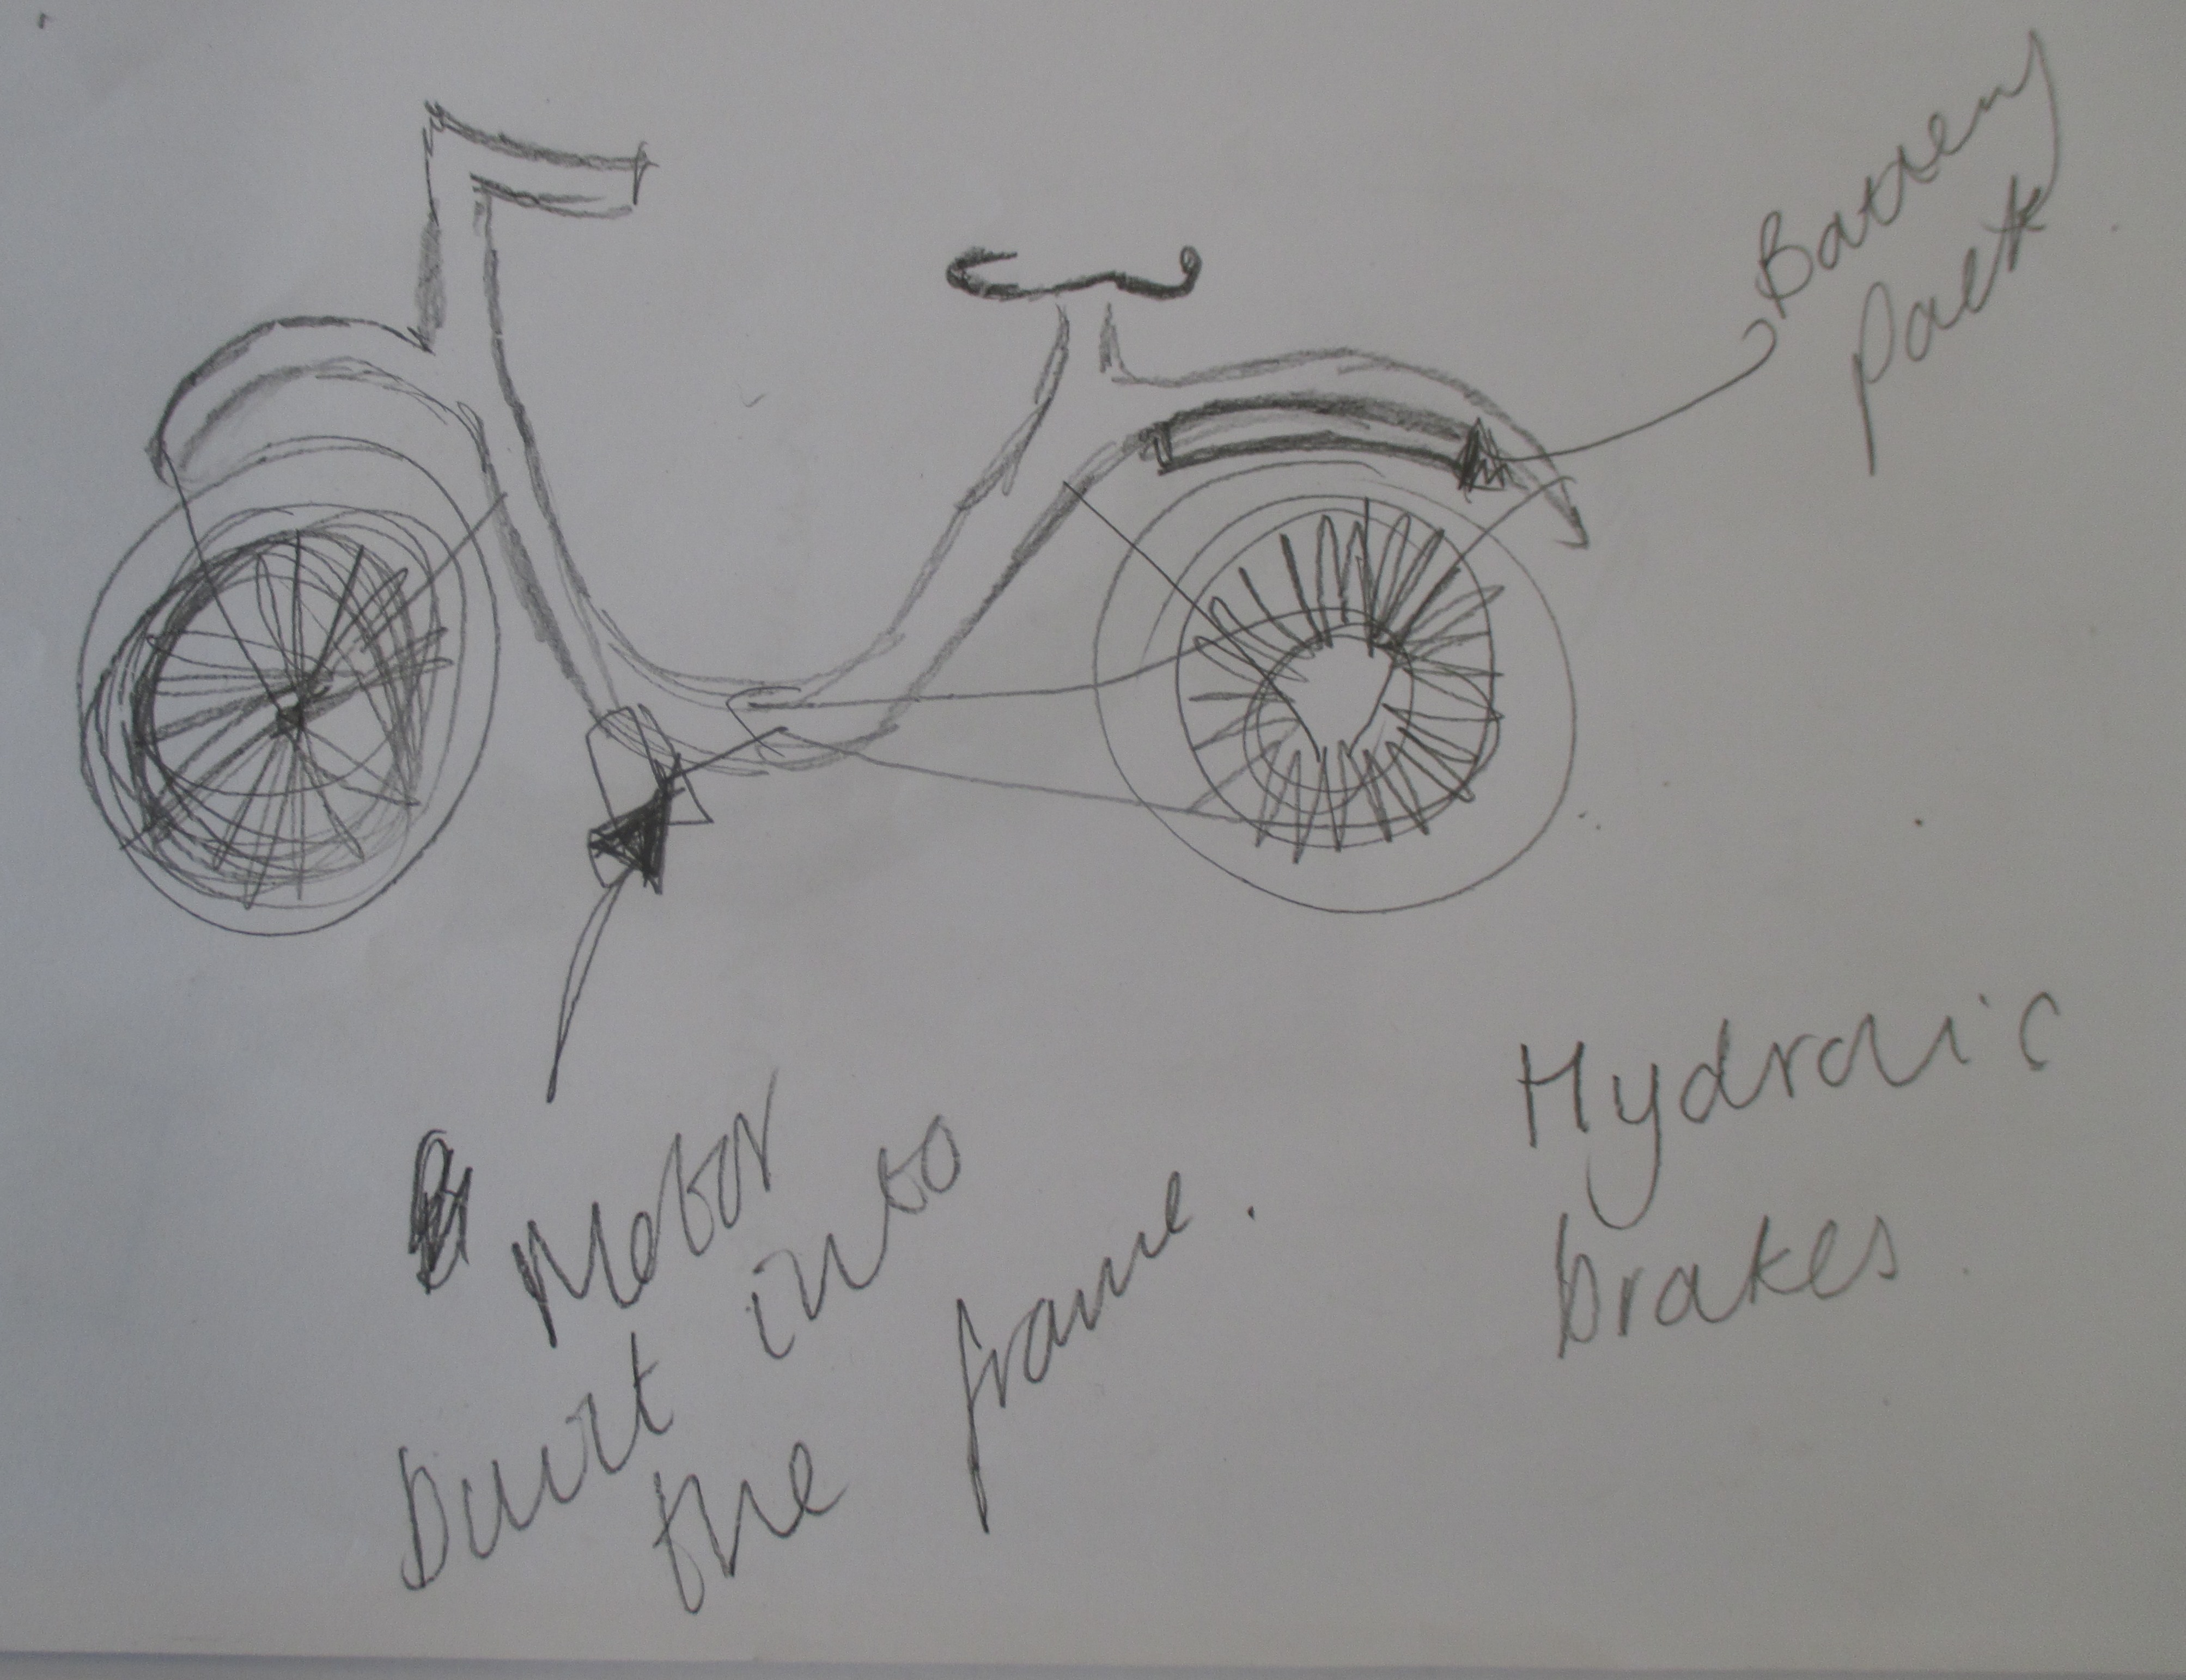 Battery
Pack
Motor
built into
the frame.
Hydralic
brakes